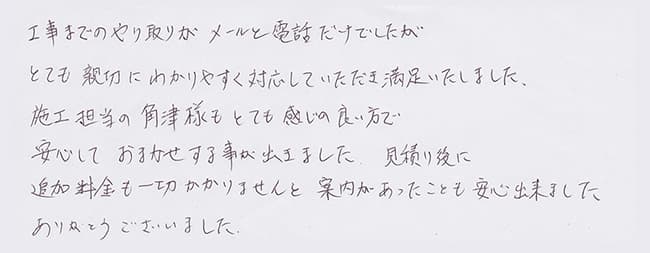 工事までのやり取りが メールと電話だけでしたが
とても 親切に わかりやすく対応していただき満足いたしました、
施工担当の 角津様も とても 感じの良い方で
安心して おまかせする事が出来ました. 見積り後に
追加料金も一切かかりませんと 案内があったことも 安心出来ました、
ありがとうございました.